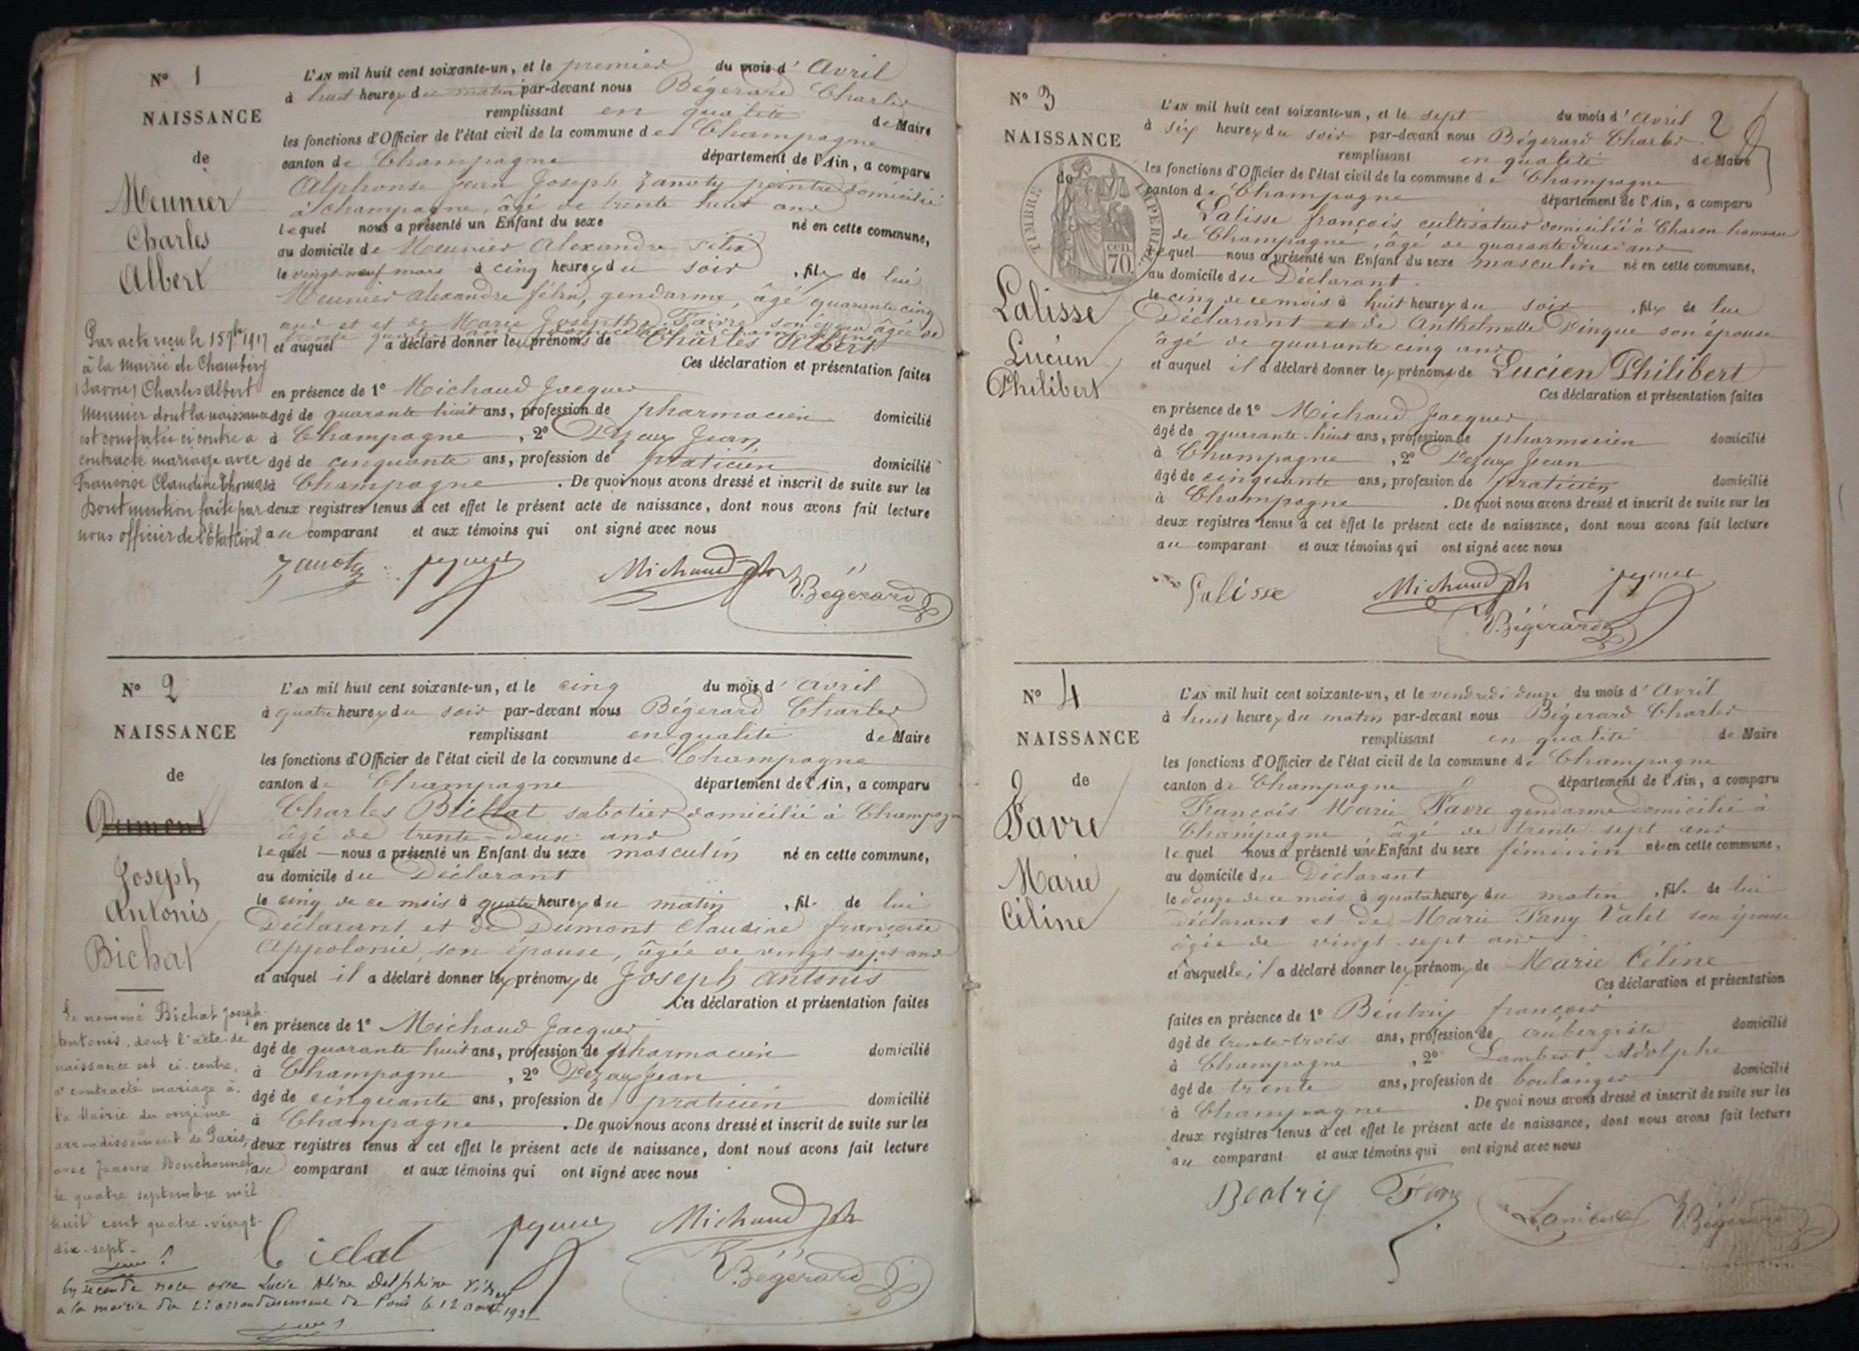 N° 1
NAISSANCE
de
Meunier
Charles
Albert
L'AN mil huit cent soixante-un, et le premier du mois d'Avril
à huit heures du matin par-devant nous Bégerard Charles
remplissant en qualité de Maire
les fonctions d'Officier de l'état civil de la commune de Champagne
canton de Champagne département de l'Ain, a comparu
Alphonse Jean Joseph Zanoty peintre domicilié
à Champagne, âgé de trente huit ans
lequel nous a présenté un Enfant du sexe né en cette commune,
au domicile de Meunier Alexandre Félix
le vingt neuf mars à cinq heures du soir , fils de lui
Meunier Alexandre félix, gendarme, âgé quarante cinq
ans et et de Marie Josephte Faivre son épouse âgée de
et auquel a déclaré donner les prénoms de Charles Albert
Ces déclaration et présentation faites
en présence de 1° Michaud Jacques
âgé de quarante huit ans, profession de pharmacien domicilié
à Champagne , 2° Dezaux Jean
âgé de cinquante ans, profession de praticien domicilié
à Champagne . De quoi nous avons dressé et inscrit de suite sur les
deux registres tenus à cet effet le présent acte de naissance, dont nous avons fait lecture
au comparant et aux témoins qui ont signé avec nous
Par acte reçu le 15 9bre 1917
à la Mairie de Chambéry
(Savoie) Charles Albert
Meunier dont la naissance
est constatée ci contre a
contracté mariage avec
Françoise Claudine Thomas
Dont mention faite par
nous officier de l'Etat civil
Zanoty Michaud Ph
Bégerard
N° 2
NAISSANCE
de
Dumont
Joseph
Antonis
Bichat
L'AN mil huit cent soixante-un, et le cinq du mois d'avril
à quatre heures du soir par-devant nous Bégerard Charles
remplissant en qualité de Maire
les fonctions d'Officier de l'état civil de la commune de Champagne
canton de Champagne département de l'Ain, a comparu
Charles Bichat sabotier domicilié à Champagne
âgé de trente-deux ans
lequel nous a présenté un Enfant du sexe masculin né en cette commune,
au domicile du Déclarant
le cinq de ce mois à quatre heures du matin , fils de lui
Déclarant, et de Dumont Claudine françoise
Appolonie, son épouse, âgée de vingt-sept ans
et auquel il a déclaré donner les prénoms de Joseph Antonis
Ces déclaration et présentation faites
en présence de 1° Michaud Jacques
âgé de quarante huit ans, profession de pharmacien domicilié
à Champagne , 2° Dezaux Jean
âgé de cinquante ans, profession de praticien domicilié
à Champagne . De quoi nous avons dressé et inscrit de suite sur les
deux registres tenus à cet effet le présent acte de naissance, dont nous avons fait lecture
au comparant et aux témoins qui ont signé avec nous
Le nommé Bichat Joseph
Antonis, dont l'acte de
naissance est ci-contre,
a contracté mariage à
la Mairie du onzième
arrondissement de Paris,
avec Jeanne
le quatre septembre mil
huit cent quatre-vingt-
dix-sept.
Michaud Ph
Bégerard
En seconde noce avec Lucie Aline Delphine
a la mairie du arrondissement de Paris le 12
N° 3
NAISSANCE
de
TIMBRE IMPÉRIAL
70 cen.
Lalisse
Lucien
Philibert
2
L'AN mil huit cent soixante-un, et le sept du mois d'avril
à six heures du soir par-devant nous Bégerard Charles
remplissant en qualité de Maire
les fonctions d'Officier de l'état civil de la commune de Champagne
canton de Champagne département de l'Ain, a comparu
Lalisse françois cultivateur domicilié à Charon hameau
de Champagne, âgé de quarante deux ans
lequel nous a présenté un Enfant du sexe masculin né en cette commune,
au domicile du Déclarant.
le cinq de ce mois à huit heures du soir , fils de lui
Déclarant et de Anthelmette Pinque son épouse
âgé de quarante cinq ans
et auquel il a déclaré donner les prénoms de Lucien Philibert
Ces déclaration et présentation faites
en présence de 1° Michaud Jacques
âgé de quarante-huit ans, profession de pharmacien domicilié
à Champagne , 2° Dezaux Jean
âgé de cinquante ans, profession de praticien domicilié
à Champagne . De quoi nous avons dressé et inscrit de suite sur les
deux registres tenus à cet effet le présent acte de naissance, dont nous avons fait lecture
au comparant et aux témoins qui ont signé avec nous
Lalisse Michaud Ph
Bégerard
N° 4
NAISSANCE
de
Favre
Marie
Céline
L'AN mil huit cent soixante-un, et le vendredi douze du mois d'avril
à huit heures du matin par-devant nous Bégerard Charles
remplissant en qualité de Maire
les fonctions d'Officier de l'état civil de la commune de Champagne
canton de Champagne département de l'Ain, a comparu
François Marie Favre gendarme domicilié à
Champagne, âgé de trente sept ans
lequel nous a présenté un Enfant du sexe féminin né en cette commune,
au domicile du Déclarant
le douze de ce mois à quatre heures du matin , fille de lui
déclarant et de Marie Fany Valet son épouse
âgée de vingt-sept ans
et auquelle il a déclaré donner les prénoms de Marie Céline
Ces déclaration et présentation
faites en présence de 1° Béatrix françois
âgé de trente-trois ans, profession de aubergiste domicilié
à Champagne , 2° Lambert Adolphe
âgé de trente ans, profession de boulanger domicilié
à Champagne . De quoi nous avons dressé et inscrit de suite sur les
deux registres tenus à cet effet le présent acte de naissance, dont nous avons fait lecture
au comparant et aux témoins qui ont signé avec nous
Béatrix Lambert Bégerard